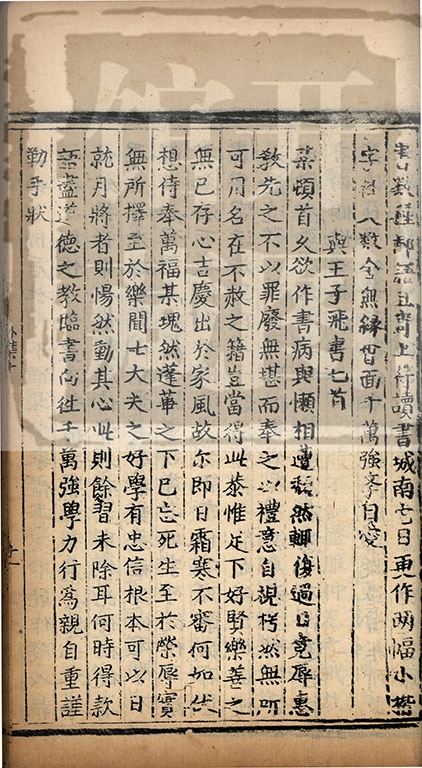 上待讀書城南七日更作兩幅小楷
字 人數全無緣會面千萬強學自愛
與王子飛書七首
某頓首久欲作書病與懶相遭頹然輒復過日竟辱惠
教先之不以罪廢無堪而奉之以禮意自視枵然無所
可用名在不赦之籍豈當得此恭惟足下好賢樂善之
無已存心吉慶出於家風故尔即日霜寒不審何如伏
想侍奉萬福某塊然蓬蓽之下已忘死生至於榮辱實
無所擇至於樂聞士大夫之好學有忠信根本可以日
就月將者則惕然動其心此則餘習未除耳何時得款
語盡道德之教臨書向往千萬強學力行爲親自重謹
勤手狀
外集十